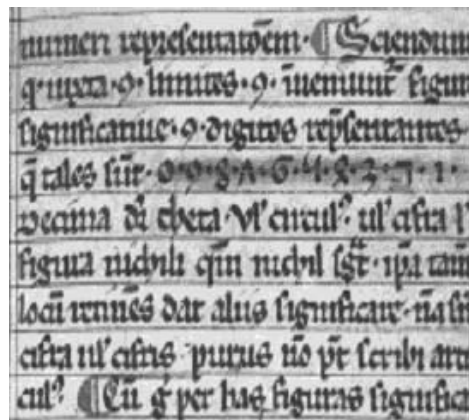 numeri representatōem· ¶ Sciendum
q· iuxta·9·limites·9·īueniunt᷑ figur
significatiue·9·digitos rep̄sentantes
q̄ tales sūt·0·9·8·Λ·6·Ч·ꝝ·3·ᒣ·1·
Decima dr̄ theta· ul' circul⁹· ul' cifra l'
figura nichili qm̄ nichil sḡt· ip̄a tam̄
locū retinēs dat aliis significare· nā sn̄
cifra ul' cifris· purus nō pt̄ scribi arti
cul⁹ ¶ Cū g̊ per has figuras significa